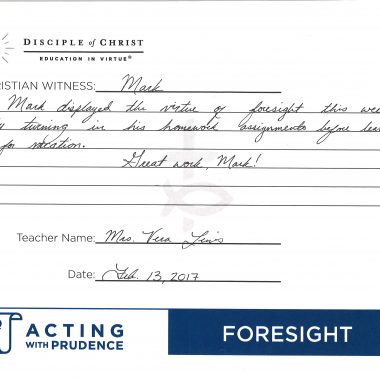 DISCIPLE of CHRIST
EDUCATION IN VIRTUE®
RISTIAN WITNESS: Mark
Mark displayed the virtue of foresight this wee
y turning in his homework assignments before leav
for vacation.
Great work, Mark!
Teacher Name: Mrs. Vera
Date: Feb. 13, 2017
ACTING
WITH PRUDENCE
FORESIGHT